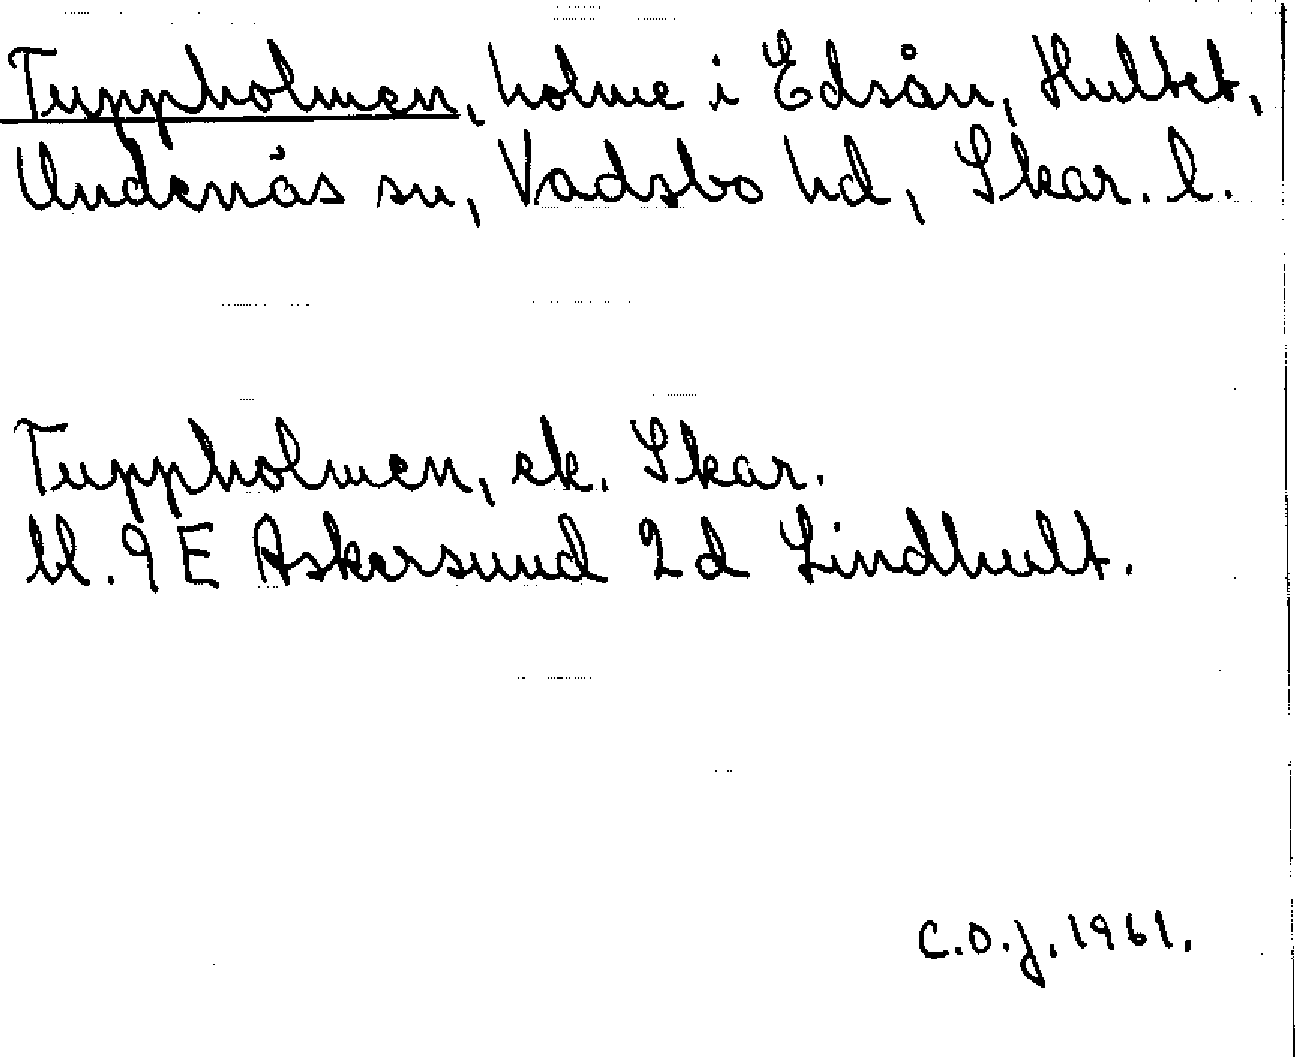 Tuppholmen, holme i Edsån, Hultet,
Undenäs sn, Vadsbo hd, Skar. l.
Tuppholmen, ek. Skar.
bl. 9 E Askersund 2d Lindhult.
C.O.J. 1961.